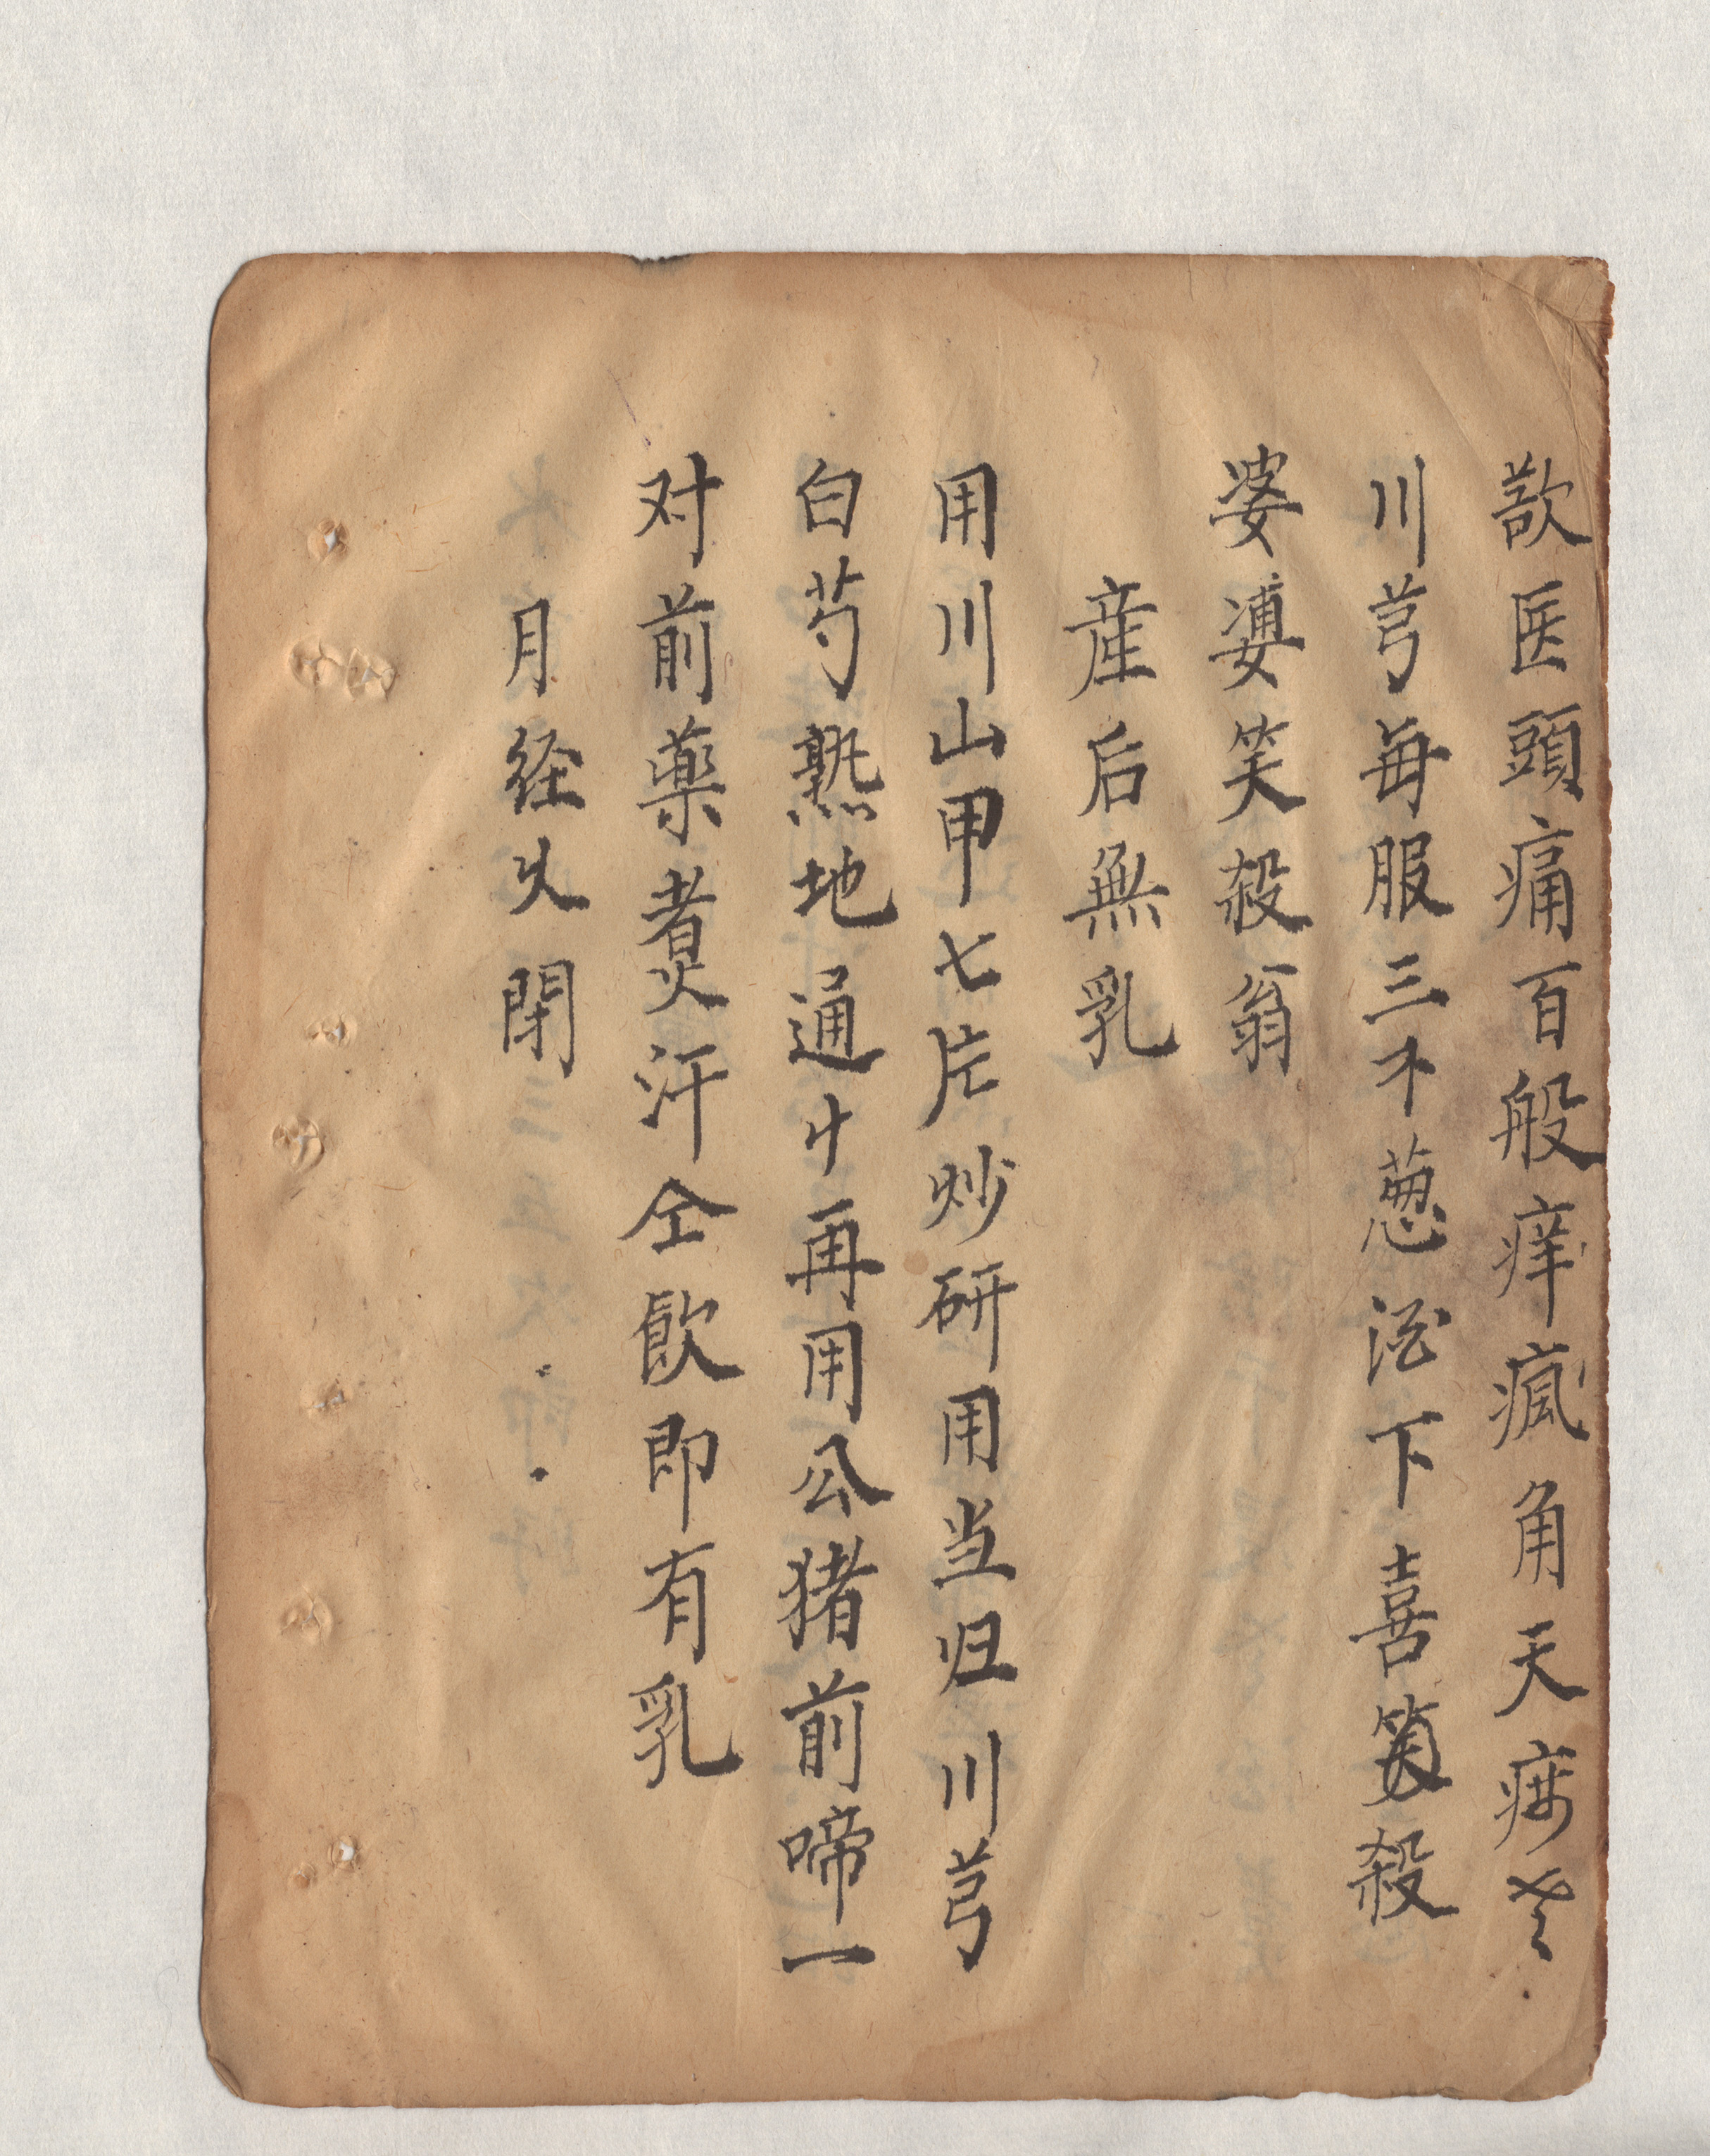 歆医頭痛百般痒瘋角天
川芎每服三不葱酒下喜笑殺
婆婆笑殺翁
産后無乳
用川山甲七片炒研用当归川芎
白芍熟地通十再用公猪前啼一
对前薬煑汗仝飲即有乳
月経久閉